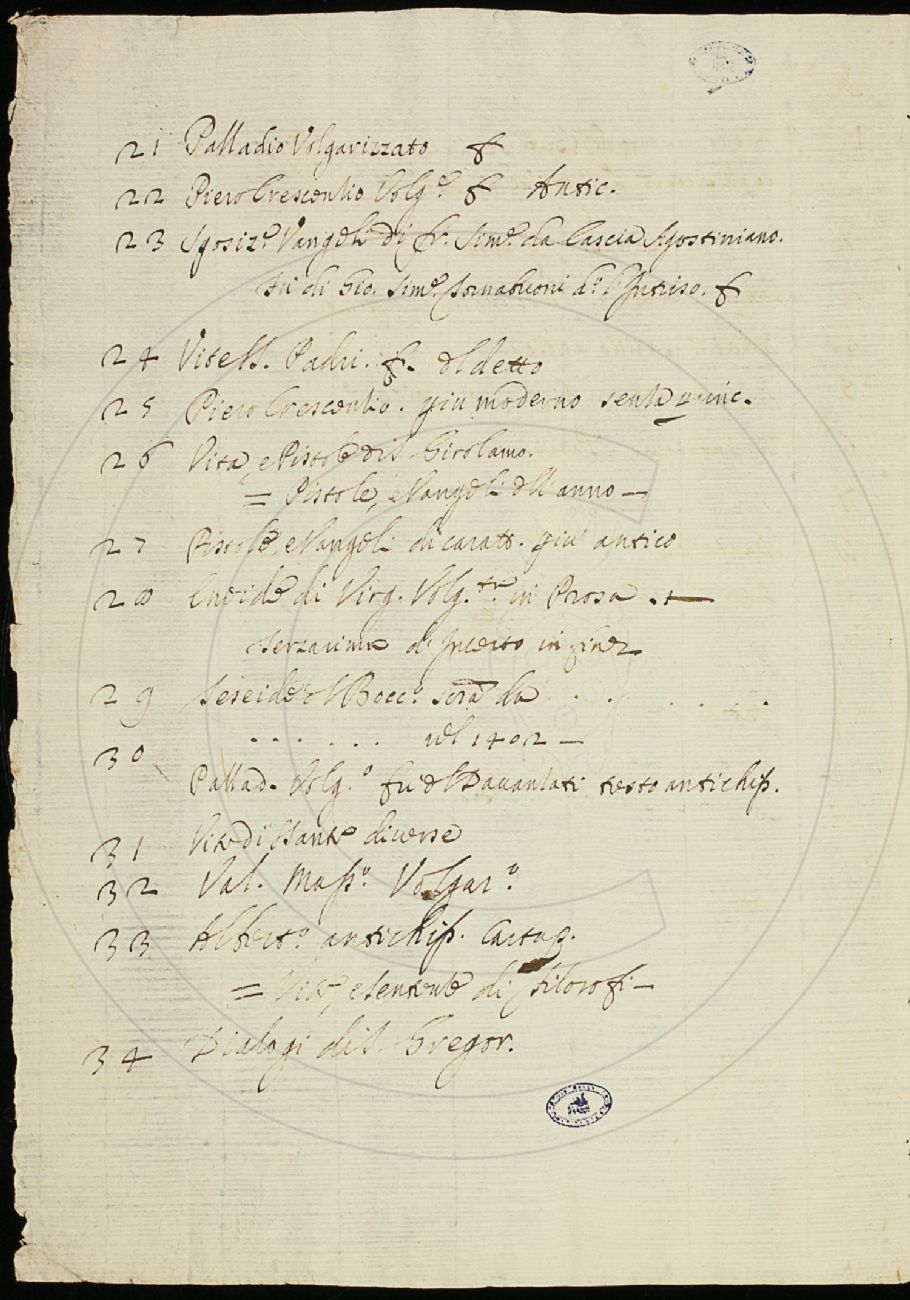 21 Palladio Volgarizzato f
22 Piero Crescentio Volg.e f Antic.
23 Sposiz.e Vangeli di fr. Sim.e da Cascia Agostiniano.
fu di Gio. Sim.e Tornabuoni d.o l'Intriso. f
24 Vite SS. Padri. f. del detto
25 Piero Crescentio. piu moderno senza princ.
26 Vita, e Pistole di S. Girolamo.
= Pistole, e Vangeli dell'anno —
27 Pistole, e Vangeli di caratt. piu antico
28 Eneide di Virg. Volg. in Prosa. +
Terzarima d'Incerto in fine
29 Teseide del Bocc.o scrã da . . . . . .
. . . . . . nel 1402 —
30 Pallad. Volg.o fu del Davanzati testo antichiss.
31 Vite di Sante diverse
32 Val. Mass.o Volgar.o
33 Albert.o antichiss. Cartap.
= Vite, e sentenze di filosofi —
34 Dialogi di S. Gregor.